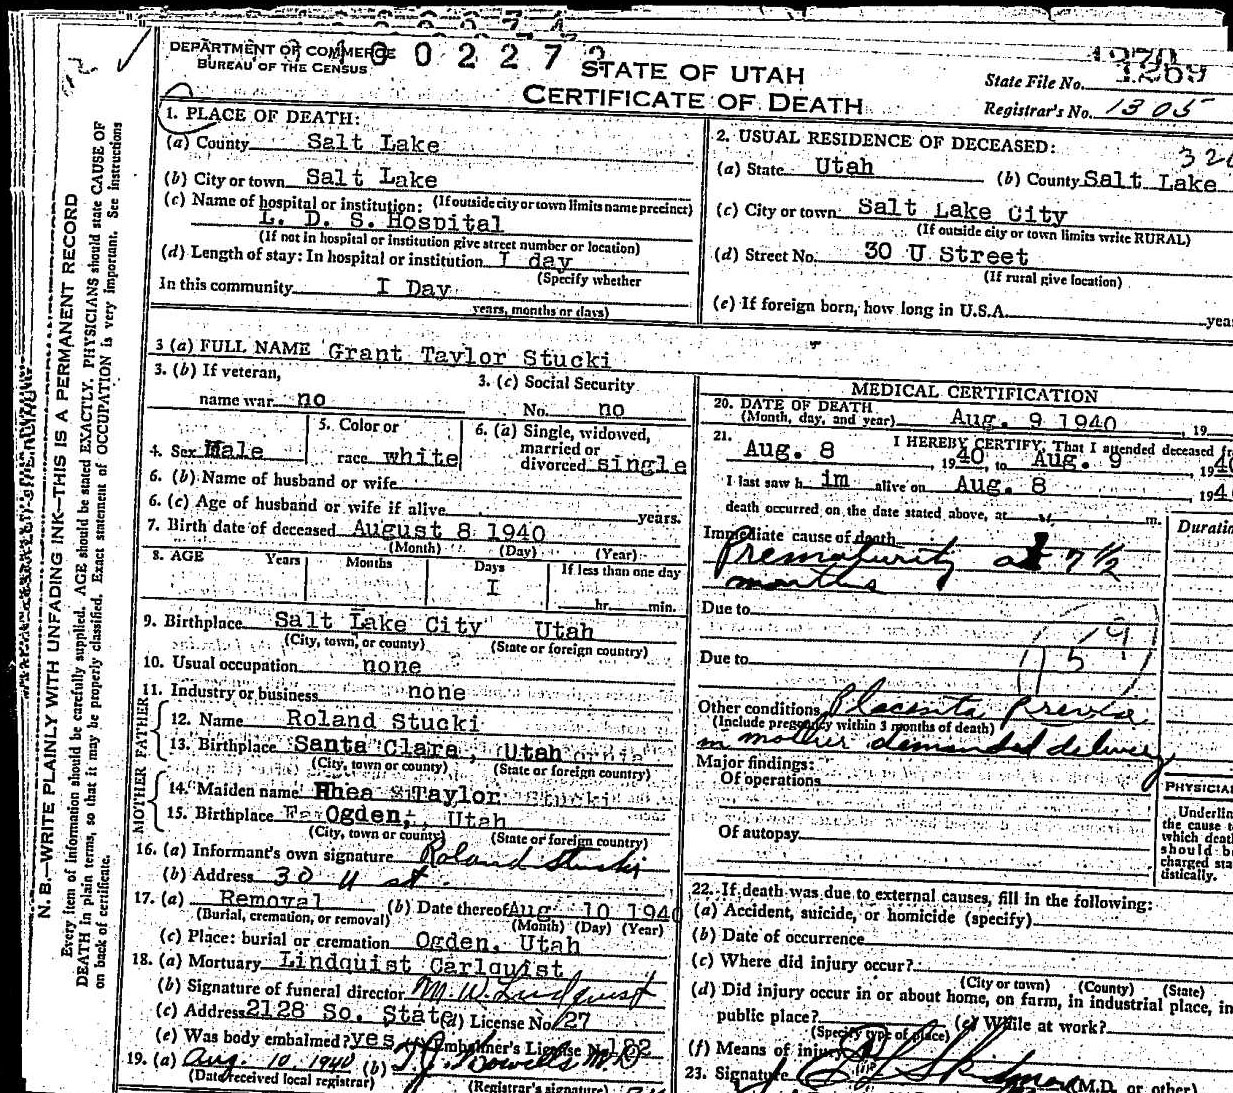 DEPARTMENT OF COMMERCE
BUREAU OF THE CENSUS
STATE OF UTAH
CERTIFICATE OF DEATH
State File No. 1269
Registrar's No. 1305
1. PLACE OF DEATH:
(a) County Salt Lake
(b) City or town Salt Lake
(If outside city or town limits name precinct)
(c) Name of hospital or institution:
L. D. S. Hospital
(If not in hospital or institution give street number or location)
(d) Length of stay: In hospital or institution I day
(Specify whether
In this community I Day
years, months or days)
2. USUAL RESIDENCE OF DECEASED:
(a) State Utah (b) County Salt Lake
(c) City or town Salt Lake City
(If outside city or town limits write RURAL)
(d) Street No. 30 U Street
(If rural give location)
(e) If foreign born, how long in U.S.A.
3 (a) FULL NAME Grant Taylor Stucki
3. (b) If veteran,
name war no
3. (c) Social Security
No. no
4. Sex Male
5. Color or
race white
6. (a) Single, widowed,
married or
divorced single
6. (b) Name of husband or wife
6. (c) Age of husband or wife if alive years.
7. Birth date of deceased August 8 1940
(Month) (Day) (Year)
8. AGE Years Months Days If less than one day
I
hr. min.
9. Birthplace Salt Lake City Utah
(City, town, or county) (State or foreign country)
10. Usual occupation none
11. Industry or business none
FATHER
12. Name Roland Stucki
13. Birthplace Santa Clara, Utah
(City, town or county) (State or foreign country)
MOTHER
14. Maiden name Rhea S Taylor
15. Birthplace Ogden, Utah
(City, town or county) (State or foreign country)
16. (a) Informant's own signature Roland Stucki
(b) Address 30 U st.
17. (a) Removal (b) Date thereof Aug. 10 1940
(Burial, cremation, or removal) (Month) (Day) (Year)
(c) Place: burial or cremation Ogden, Utah
18. (a) Mortuary Lindquist Carlquist
(b) Signature of funeral director M. W. Lindquist
(c) Address 2128 So. State (d) License No. 127
(e) Was body embalmed? yes Embalmer's License No. 182
19. (a) Aug. 10, 1940 (b) T. J. Howells M.D
(Date received local registrar) (Registrar's signature)
MEDICAL CERTIFICATION
20. DATE OF DEATH
(Month, day, and year) Aug. 9 1940, 19
21. I HEREBY CERTIFY, That I attended deceased
Aug. 8, 1940, to Aug. 9, 1940
I last saw h im alive on Aug. 8, 194
death occurred on the date stated above, at m.
Immediate cause of death
Prematurity at 7 1/2
months
Due to
Due to
159
Other conditions Placenta Previa
(Include pregnancy within 3 months of death)
in mother demanded delivery
Major findings:
Of operations
Of autopsy
PHYSICIAN
Underline
the cause
which death
should be
charged
tistically.
22. If death was due to external causes, fill in the following:
(a) Accident, suicide, or homicide (specify)
(b) Date of occurrence
(c) Where did injury occur?
(City or town) (County) (State)
(d) Did injury occur in or about home, on farm, in industrial place, in
public place? (e) While at work?
(Specify type of place)
(f) Means of injury
23. Signature (M.D. or other)
N. B.—WRITE PLAINLY WITH UNFADING INK—THIS IS A PERMANENT RECORD
Every item of information should be carefully supplied. AGE should be stated EXACTLY. PHYSICIANS should state CAUSE OF
DEATH in plain terms, so that it may be properly classified. Exact statement of OCCUPATION is very important. See instructions
on back of certificate.